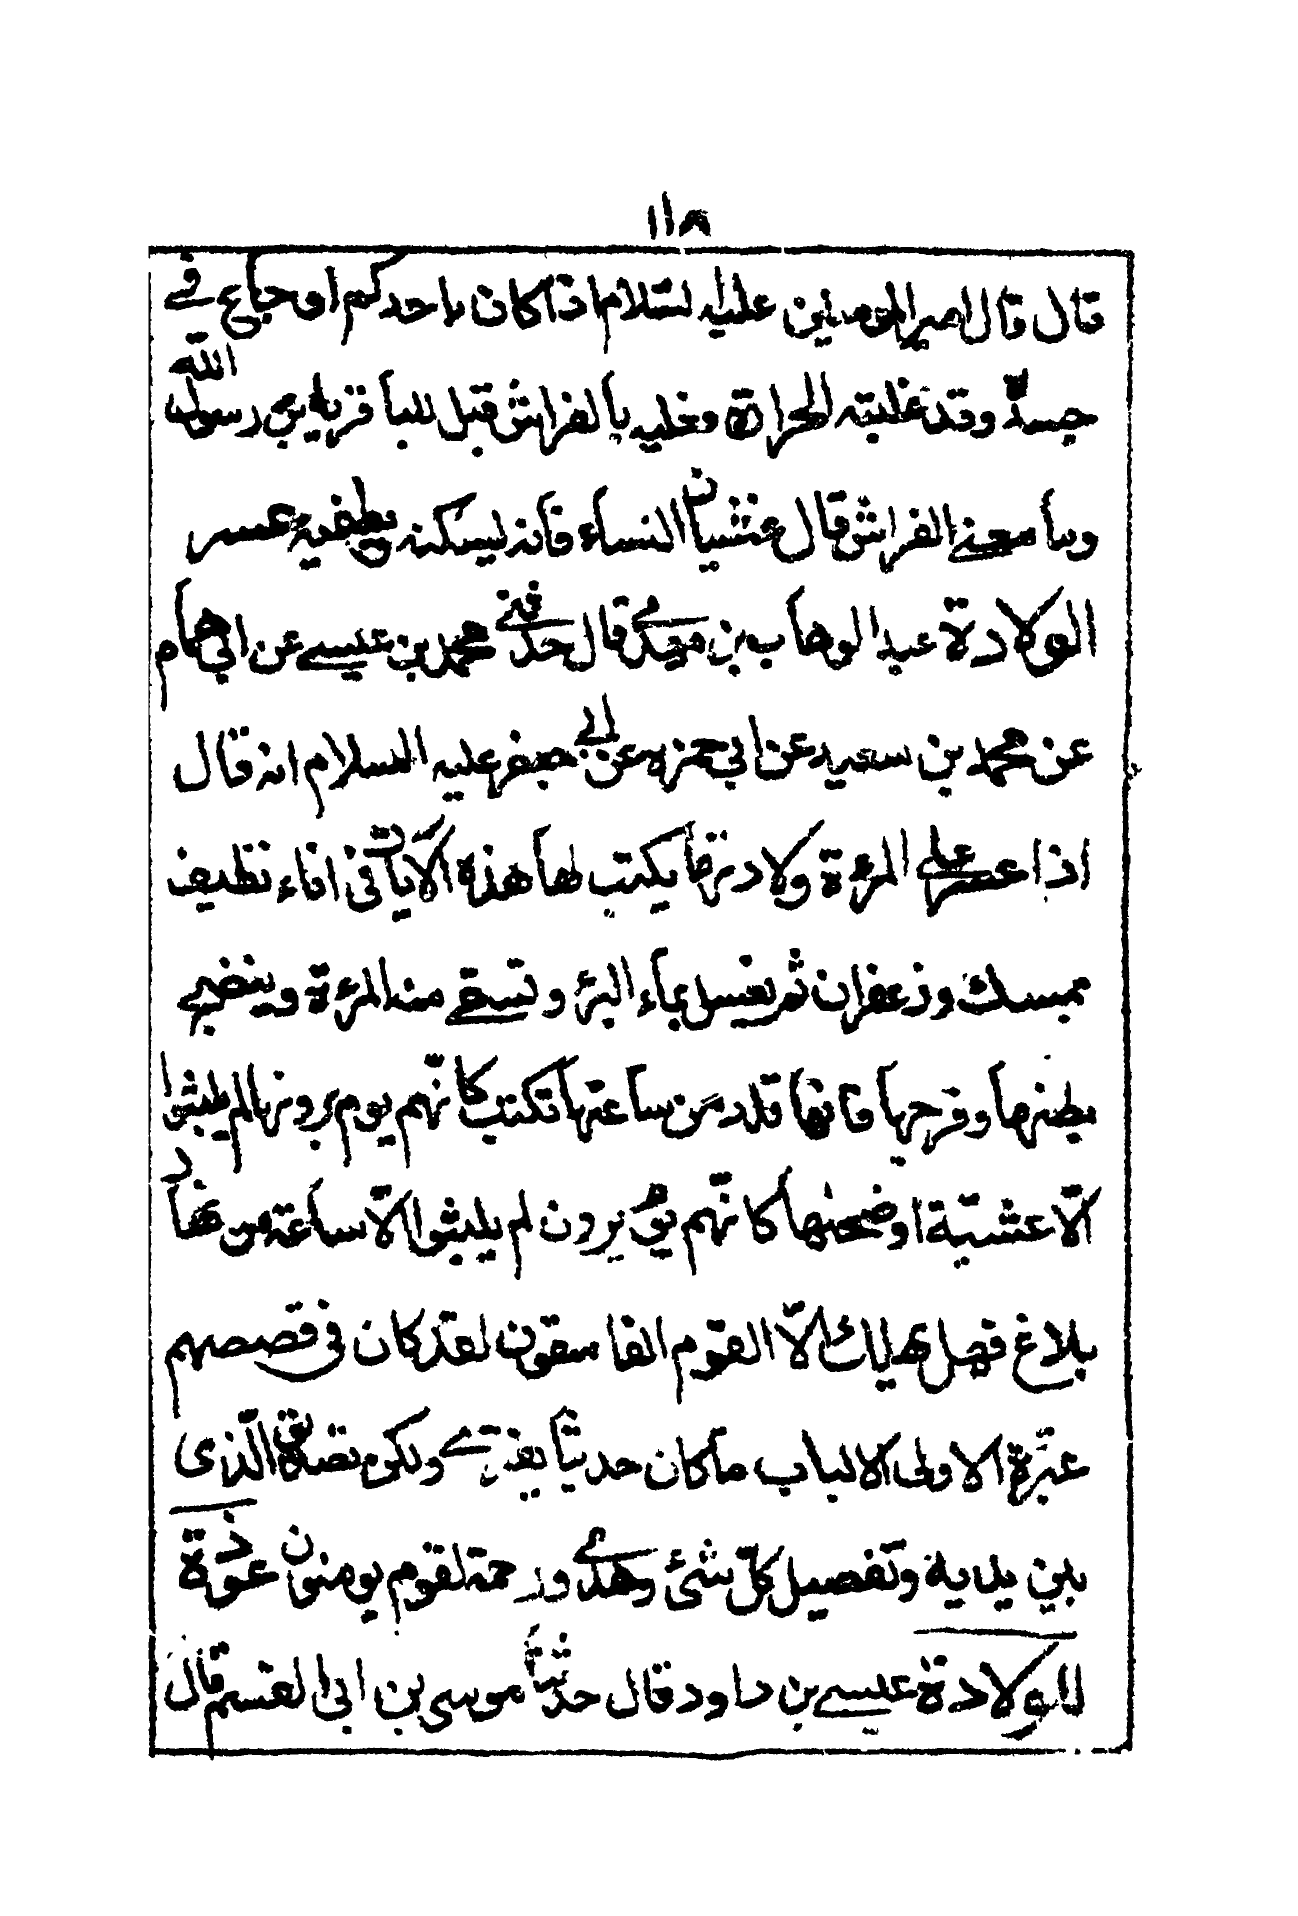 ١١٨
قال قال امير المؤمنين عليه السّلام اذا كان باحدكم اوجاع في
جسدّه وقد غلبته الحرارة وعليه بالفراش قيل للباقر يابن رسول الله
وما معنى الفراش قال غشيان النساء فانه يسكنه ويطفيه عسر
الولادة عبد الوهاب بن مهدى قال حدثنى محمد بن عيسى عن ابي همام
عن محمد بن سعيد عن ابي حمزه عن ابى جعفر عليه السلام انه قال
اذا عسر على المرءة ولادتها يكتب لها هذه الايات في اناء نظيف
بمسك وزعفران ثم يغسل بماء البئر وتسقى منه المرءة وينضح
بطنها وفرجها فانها تلد من ساعتها تكتب كانّهم يوم يرونها لم يلبثوا
الّا عشيّة اوضحيها كانّهم يوم يرون لم يلبثوا الّا ساعة من نهار
بلاغ فهل يهلك الّا القوم الفاسقون لقد كان في قصصهم
عبرّة لاولى الالباب ما كان حديثا يفترى ولكن تصديق الّذى
بين يديه وتفصيل كلّ شئ وهدى ورحمة لقوم يومنون عوذة
للولادة عيسى بن داود قال حدثنا موسى بن ابى القسم قال